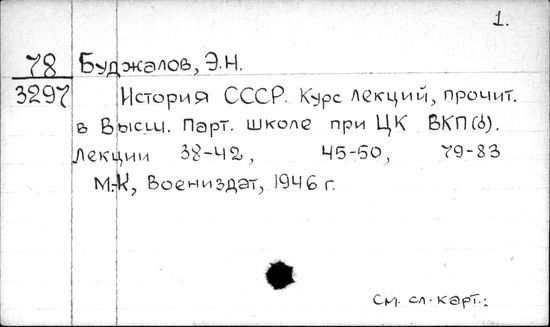 1.
78 Буджалов, Э.Н.
3297 История СССР. Курс лекций, прочит.
в Высш. Парт. школе при ЦК ВКП(б).
Лекции 38-42, 45-50, 79-83
М.-К, Воениздат, 1946 г.
См. сл. карт.: